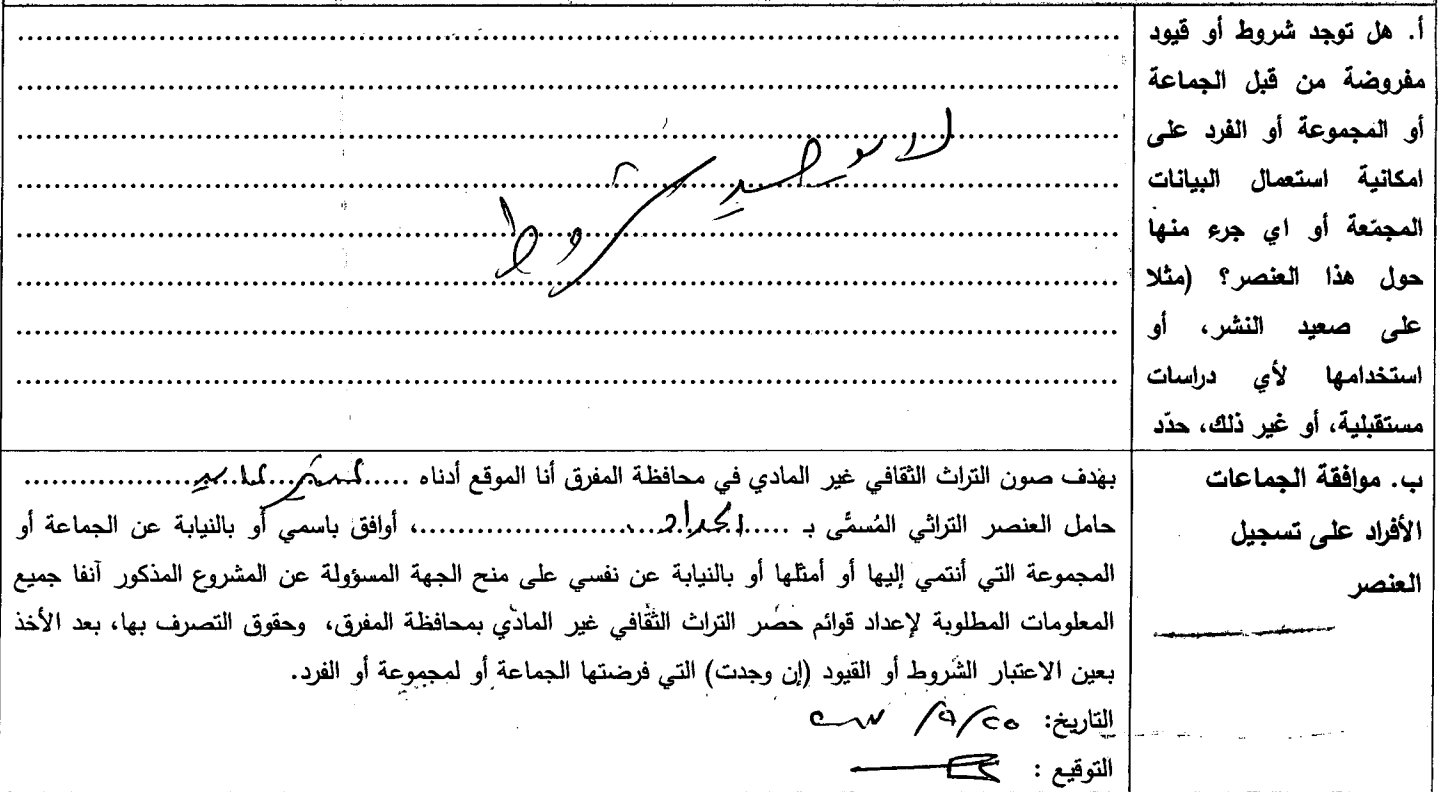 أ. هل توجد شروط أو قيود
مفروضة من قبل الجماعة
أو المجموعة أو الفرد على
امكانية استعمال البيانات
المجمّعة أو اي جرء منها
حول هذا العنصر؟ (مثلا
على صعيد النشر، أو
استخدامها لأي دراسات
مستقبلية، أو غير ذلك، حدّد
لا يوجد شروط
ب. موافقة الجماعات
الأفراد على تسجيل
العنصر
بهدف صون التراث الثقافي غير المادي في محافظة المفرق أنا الموقع أدناه
حامل العنصر التراثي المُسمَّى بـ ..........، أوافق باسمي أو بالنيابة عن الجماعة أو
المجموعة التي أنتمي إليها أو أمثلها أو بالنيابة عن نفسي على منح الجهة المسؤولة عن المشروع المذكور آنفا جميع
المعلومات المطلوبة لإعداد قوائم حصر التراث الثقافي غير المادي بمحافظة المفرق، وحقوق التصرف بها، بعد الأخذ
بعين الاعتبار الشروط أو القيود (إن وجدت) التي فرضتها الجماعة أو لمجموعة أو الفرد.
التاريخ: ٢٥/٩/
التوقيع :